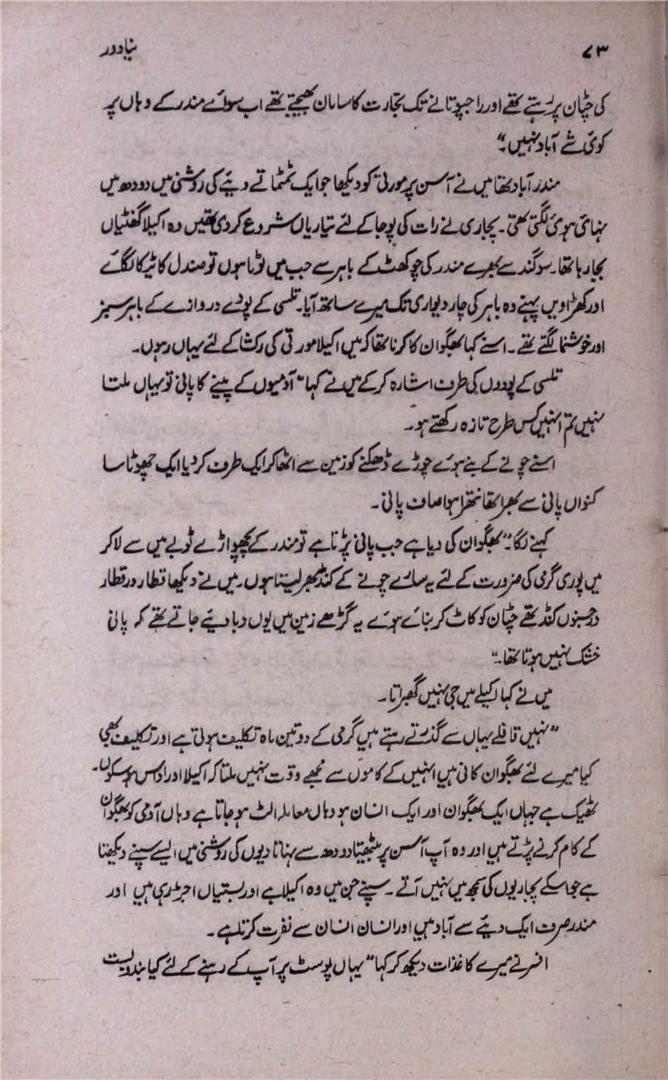 ۷۳ نیا دور
کی چٹان پر رہتے تھے اور راجپوتانے تک تجارت کا سامان بھیجتے تھے اب سوائے مندر کے وہاں پر
کوئی شے آباد نہیں۔"
مندر آباد تھا میں نے آسن پر مورتی کو دیکھا جو ایک ٹمٹماتے دیئے کی روشنی میں دودھ میں
نہائی ہوئی لگتی تھی۔ پجاری نے رات کی پوجا کے لئے تیاریاں شروع کر دی تھیں وہ اکیلا گھنٹیاں
بجا رہا تھا۔ سوگند سے بھرے مندر کی چوکھٹ کے باہر سے جب میں لوٹا ہوں تو صندل کا ٹیکا لگائے
اور کھڑاویں پہنے وہ باہر کی چار دیواری تک میرے ساتھ آیا۔ تلسی کے پودے دروازے کے باہر سبز
اور خوشنما لگتے تھے۔ اسنے کہا بھگوان کا کرنا تھا کہ میں اکیلا مورتی کی رکشا کے لئے یہاں رہوں۔
تلسی کے پودوں کی طرف اشارہ کر کے میں نے کہا "آدمیوں کے پینے کا پانی تو یہاں ملتا
نہیں تم انہیں کس طرح تازہ رکھتے ہو۔
اسنے چونے کے بنے ہوئے چوڑے ڈھکنے کو زمین سے اٹھا کر ایک طرف کر دیا ایک چھوٹا سا
کنواں پانی سے بھرا تھا نتھرا ہوا صاف پانی۔
کہنے لگا "بھگوان کی دیا ہے جب پانی پڑتا ہے تو مندر کے پچھواڑے ٹوبے میں سے لا کر
میں پوری گرمی کی ضرورت کے لئے یہ سارے چونے کے کنڈ بھر لیتا ہوں۔ میں نے دیکھا قطار در قطار
درجنوں کنڈ تھے چٹان کو کاٹ کر بنائے ہوئے یہ گڑھے زمین میں یوں دبا دیئے جاتے تھے کہ پانی
خشک نہیں ہوتا تھا۔"
میں نے کہا اکیلے میں جی نہیں گھبراتا۔
"نہیں قافلے یہاں سے گذرتے رہتے ہیں گرمی کے دو تین ماہ تکلیف ہوتی ہے اور تکلیف بھی
کیا میرے لئے بھگوان کافی ہیں انہیں کے کاموں سے مجھے وقت نہیں ملتا کہ اکیلا اور اداس ہو سکوں۔
ٹھیک ہے جہاں ایک بھگوان اور ایک انسان ہو وہاں معاملہ الٹ ہو جاتا ہے وہاں آدمی کو بھگوان
کے کام کرنے پڑتے ہیں اور وہ آپ آسن پر بیٹھا دودھ سے نہاتا دیوں کی روشنی میں ایسے سپنے دیکھتا
ہے جو اسکے پجاریوں کی سمجھ میں نہیں آتے۔ سپنے جن میں وہ اکیلا ہے اور بستیاں اجڑ رہی ہیں اور
مندر صرف ایک دیئے سے آباد ہیں اور انسان انسان سے نفرت کرتا ہے۔
افسر نے میرے کاغذات دیکھ کر کہا "یہاں پوسٹ پر آپ کے رہنے کے لئے کیا بندوبست